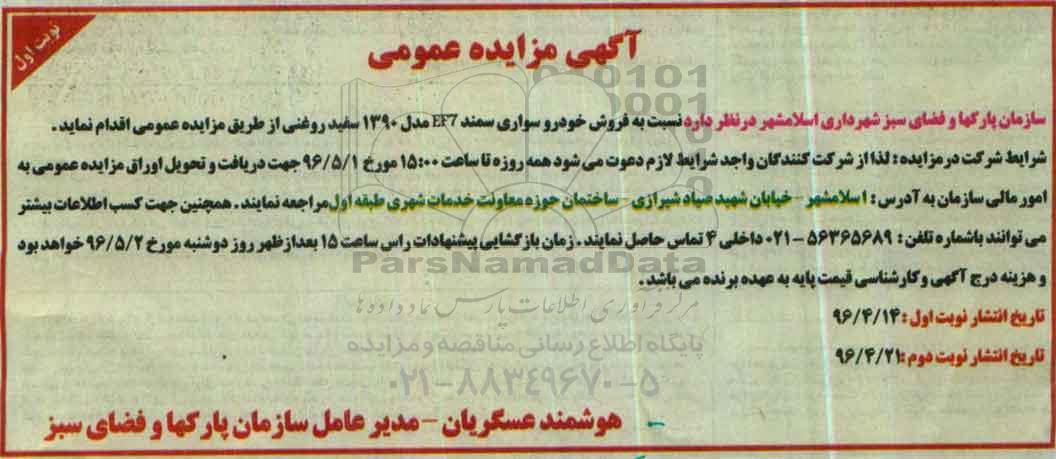 نوبت اول
آگهی مزایده عمومی
سازمان پارکها و فضای سبز شهرداری اسلامشهر در نظر دارد نسبت به فروش خودرو سواری سمند EF7 مدل ۱۳۹۰ سفید روغنی از طریق مزایده عمومی اقدام نماید.
شرایط شرکت در مزایده: لذا از شرکت کنندگان واجد شرایط لازم دعوت می شود همه روزه تا ساعت ۱۵:۰۰ مورخ ۹۶/۵/۱ جهت دریافت و تحویل اوراق مزایده عمومی به
امور مالی سازمان به آدرس: اسلامشهر - خیابان شهید صیاد شیرازی - ساختمان حوزه معاونت خدمات شهری طبقه اول مراجعه نمایند. همچنین جهت کسب اطلاعات بیشتر
می توانند باشماره تلفن: ۵۶۳۶۵۶۸۹ - ۰۲۱ داخلی ۴ تماس حاصل نمایند. زمان بازگشایی پیشنهادات راس ساعت ۱۵ بعدازظهر روز دوشنبه مورخ ۹۶/۵/۲ خواهد بود
و هزینه درج آگهی و کارشناسی قیمت پایه به عهده برنده می باشد.
تاریخ انتشار نوبت اول: ۹۶/۴/۱۴
تاریخ انتشار نوبت دوم: ۹۶/۴/۲۱
هوشمند عسگریان - مدیر عامل سازمان پارکها و فضای سبز
010101
0001
ParsNamadData
مرکز فرآوری اطلاعات پارس نماد داده ها
پایگاه اطلاع رسانی مناقصه و مزایده
۰۲۱-۸۸۳۴۹۶۷۰-۵